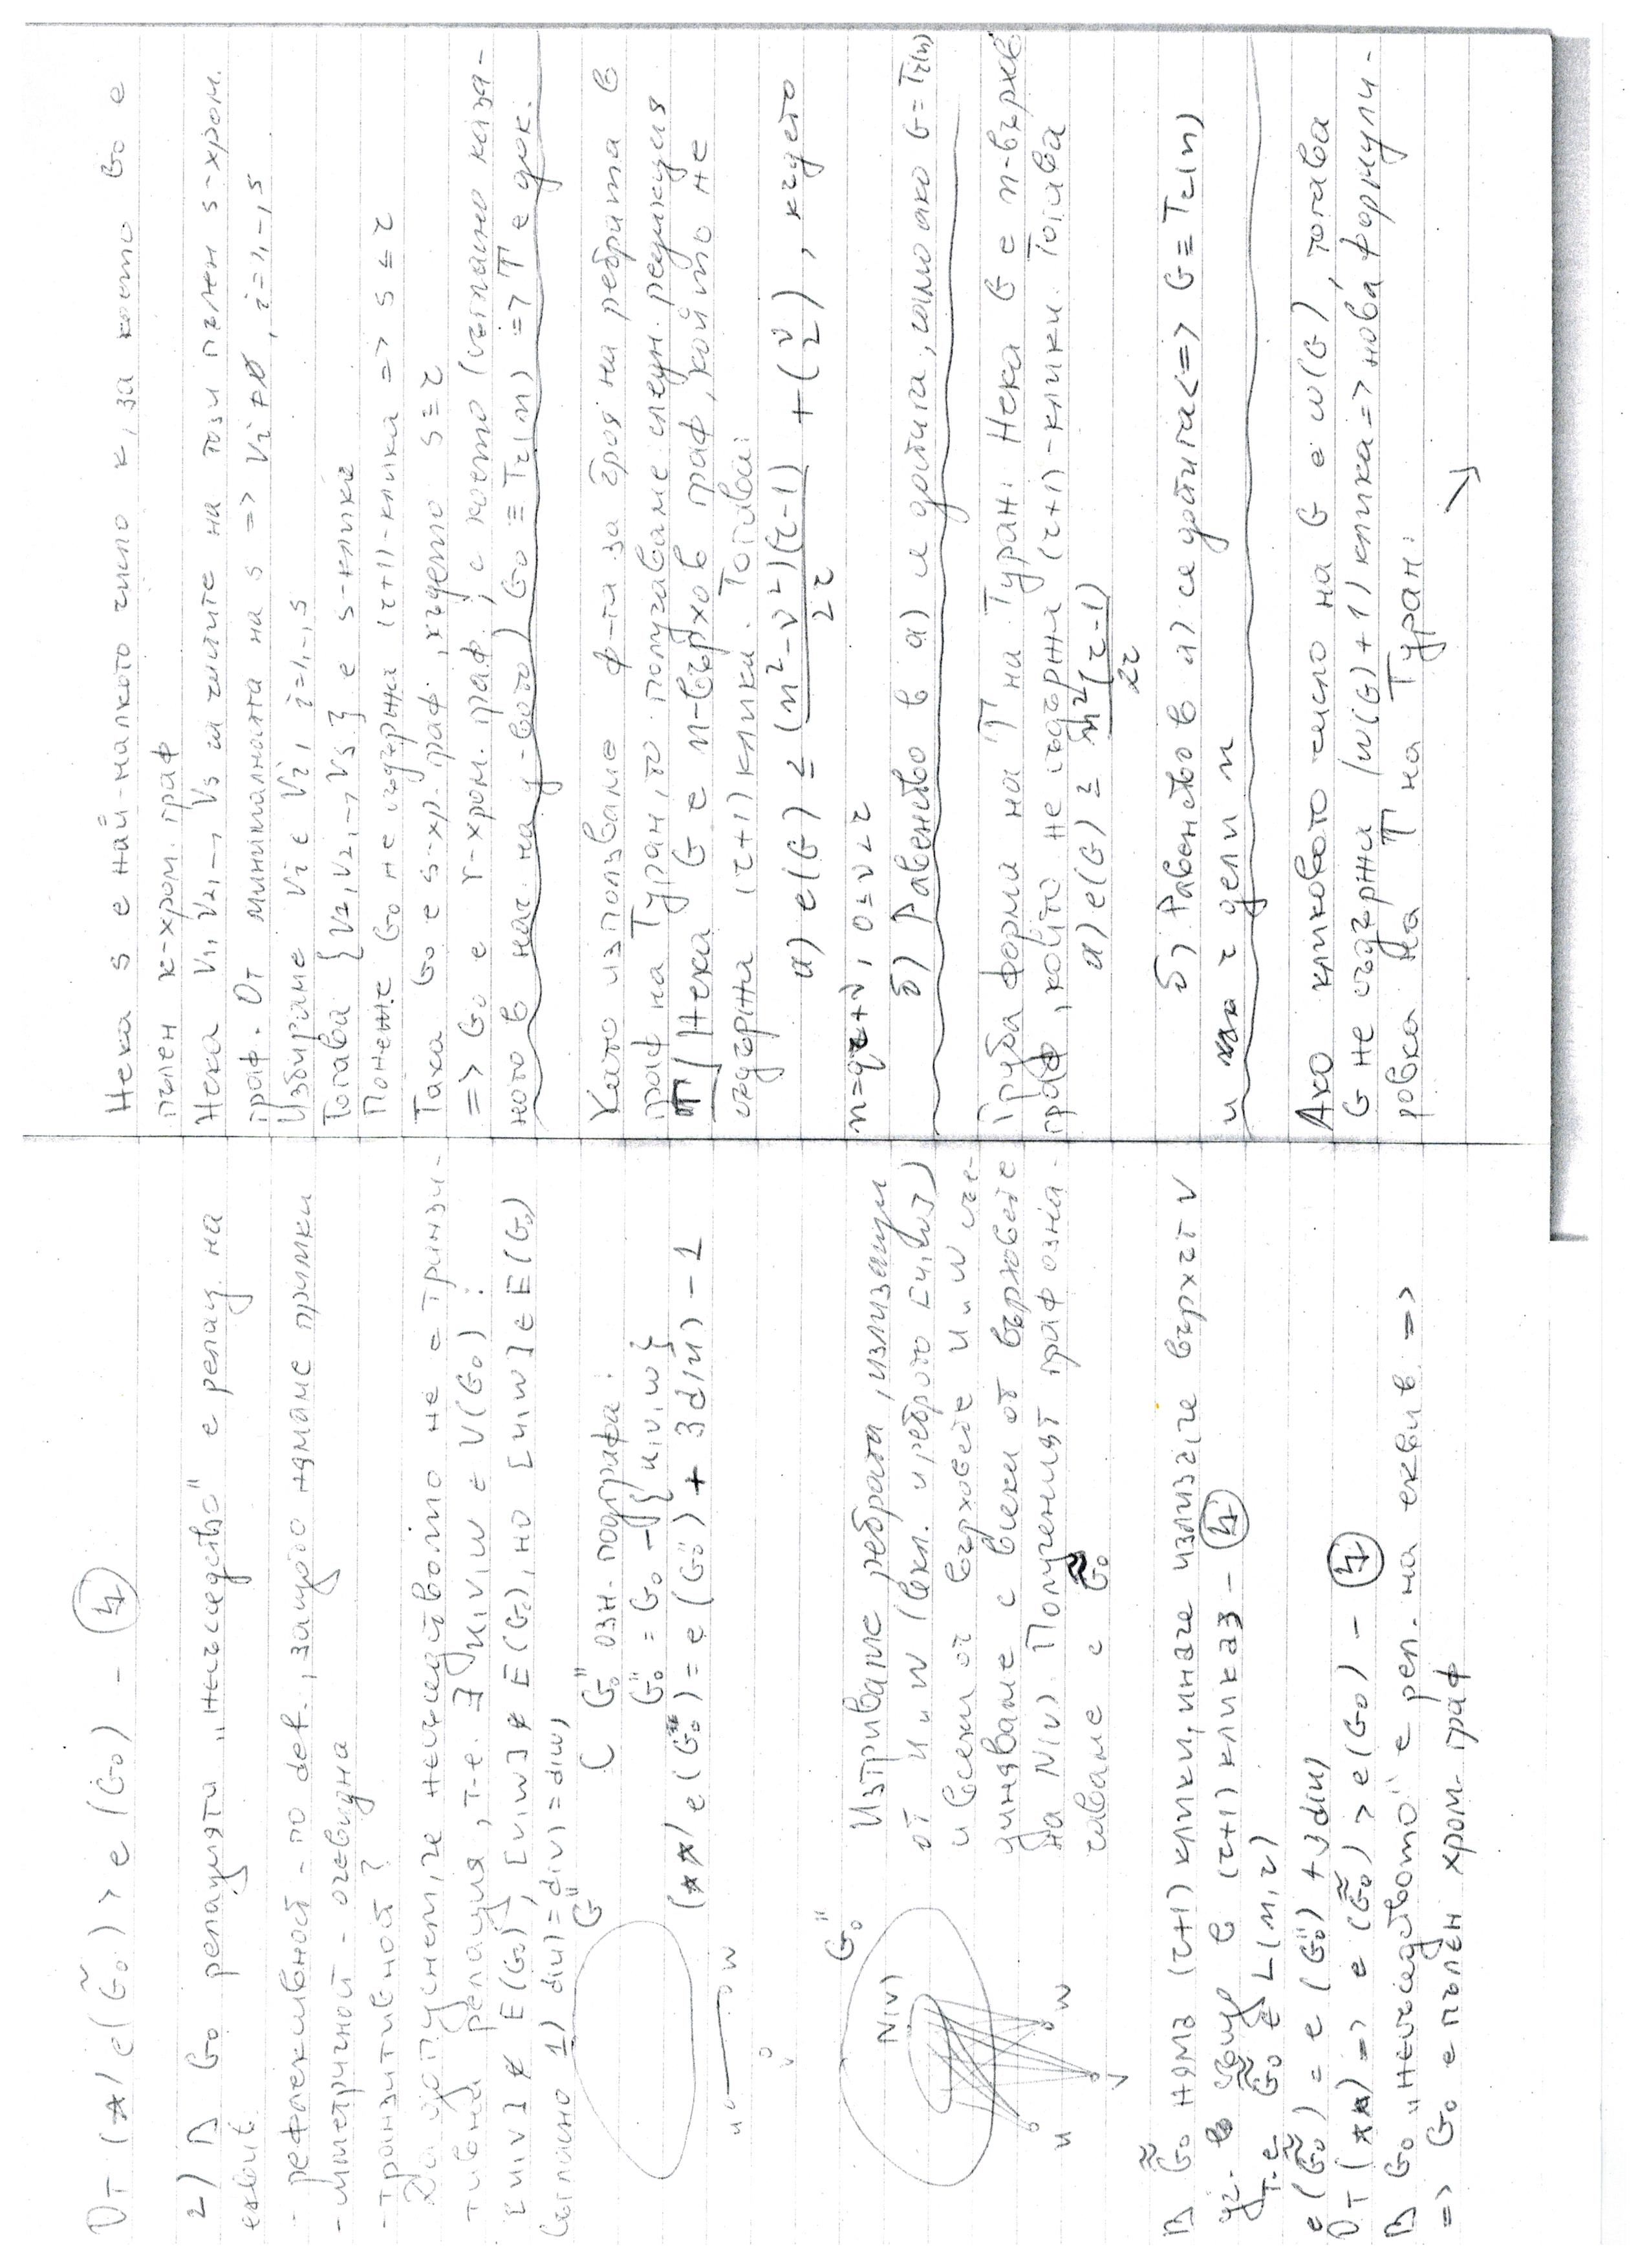 От (*) e(G̃₀) > e(G₀) - ↯
2) В G₀ релацията „несъседство" е релац. на
еквив.
- рефлексивност - по def., защото нямаме примки
- симетричност - очевидна
- транзитивност ?
Да допуснем, че несъседството не е транзи-
тивна релация, т.е. ∃ u, v, w ∈ V(G₀) :
[u,v] ∉ E(G₀), [v,w] ∉ E(G₀), но [u,w] ∈ E(G₀)
Съгласно 1) d(u) = d(v) = d(w)
G₀''
С G₀'' озн. подграфа :
G₀'' = G₀ - {u,v,w}
(**) e(G₀) = e(G₀'') + 3d(u) - 1
u v w
G₀''
N(v)
u v w
Изтриваме ребрата, излизащи
от u и w (вкл. и реброто [u,w])
и всеки от върховете u и w съе-
диняваме с всеки от върховете
на N(v). Полученият граф озна-
чаваме с G̃̃₀
В G̃̃₀ няма (r+1) клики, иначе излиза, че върхът v
уч. в (r+1) клика - ↯
т.е. G̃̃₀ ∈ L(n,r)
e(G̃̃₀) = e(G₀'') + 3d(u)
От (**) => e(G̃̃₀) > e(G₀) - ↯
В G₀ „несъседството" е рел. на еквив =>
=> G₀ е пълен хром. граф
Нека s е най-малкото число k, за което G₀ е
пълен k-хром. граф
Нека V₁, V₂, ..., Vs са числите на този пълен s-хром.
граф. От минималната на s => Vi ≠ Ø, i=1,...,s
Избираме vi ∈ Vi, i=1,...,s
Тогава {v₁, v₂, ..., vs} е s-клика
Понеже G₀ не съдържа (r+1)-клика => s ≤ r
Така G₀ е s-хр. граф, където s ≤ r
=> G₀ е r-хром. граф, с което (съгласно каза-
ното в нач. на у-вото) G₀ ≡ Tr(n) => Т е док.
Като използваме ф-та за броя на ребрата в
граф на Туран, то получаваме след. редукция
Т/ Нека G е n-върхов граф, който не
съдържа (r+1) клики. Тогава:
а) e(G) ≤ (n²-ν²)(r-1)/2r + (ν 2), където
n=qr+ν, 0≤ν<r
б) Равенство в а) и достига, само ако G=Tr(n)
Груба форма на Т на Туран: Нека G е n-върхов
граф, който не съдържа (r+1)-клики. Тогава
а) e(G) ≤ n²(r-1)/2r
б) Равенство в а) се достига <=> G ≡ Tr(n)
и r дели n
Ако кликовото число на G е ω(G), тогава
G не съдържа (ω(G)+1) клика => нова формули-
ровка на Т на Туран: